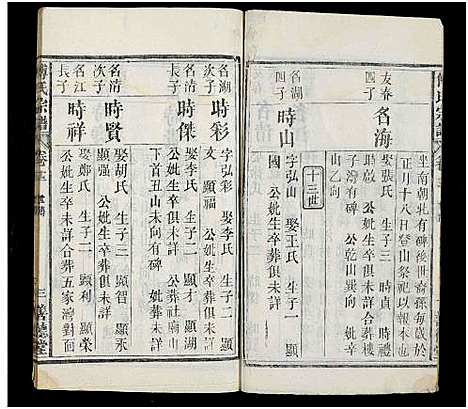 坐南朝北有碑後世裔孫每歲於
正月十八日登山祭祀以報本也
友春
四子
名海
娶張氏 生子三 時貞 時興
時啟 公妣生卒俱未詳合葬樓
山乙向
十三世
名湖
四子
時山
字弘山 娶王氏 生子二 顯
國 公妣生卒俱未詳
名湖
次子
時彩
字弘彩 娶李氏 生子二 顯
文 顯 公妣生卒俱未詳
名清
長子
時傑
娶李氏 生子二 顯才 顯湖
公妣生卒俱未詳 公葬社廟山
下首丑山未向有碑 妣葬
名清
次子
時賢
娶胡氏 生子二 顯利 顯永
公妣生卒俱未詳
名江
長子
時祥
娶鄭氏 生子二 顯智 顯榮
公妣生卒未詳合葬五家灣對面
傅氏宗譜
三